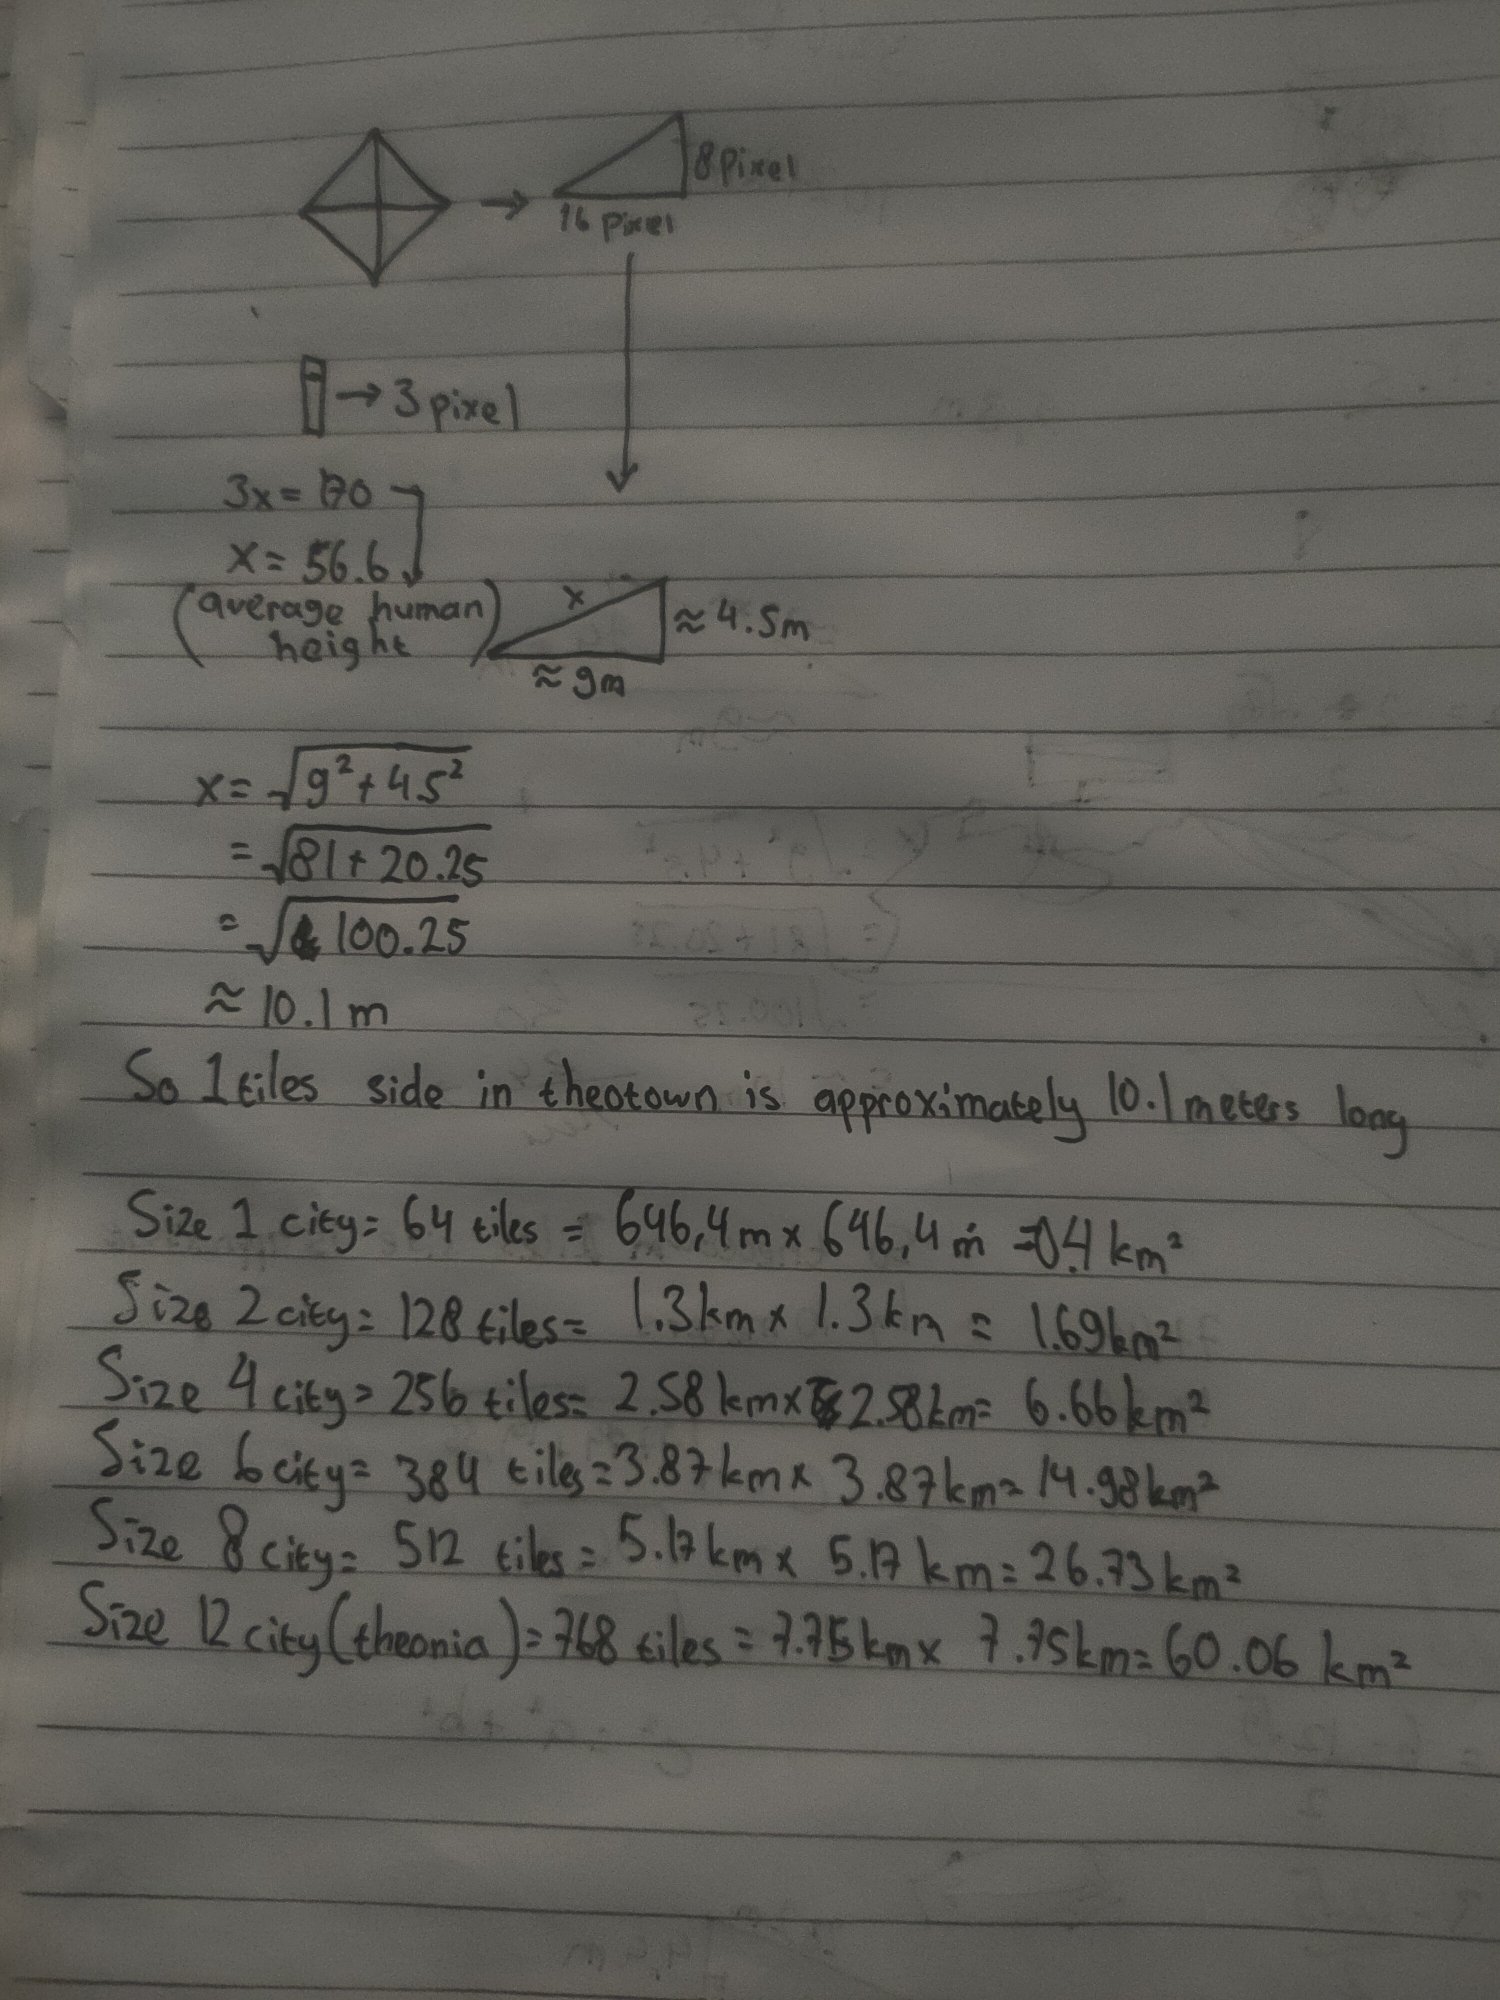 8 pixel
16 pixel
→ 3 pixel
3x = 170
x = 56.6
(average human height)
x
≈ 4.5m
≈ 9m
x = √9² + 4.5²
= √81 + 20.25
= √100.25
≈ 10.1 m
So 1 tiles side in theotown is approximately 10.1 meters long
Size 1 city = 64 tiles = 646,4 m x 646,4 m = 0.4 km²
Size 2 city = 128 tiles = 1.3 km x 1.3 km = 1.69 km²
Size 4 city = 256 tiles = 2.58 km x 2.58 km = 6.66 km²
Size 6 city = 384 tiles = 3.87 km x 3.87 km = 14.98 km²
Size 8 city = 512 tiles = 5.17 km x 5.17 km = 26.73 km²
Size 12 city (theonia) = 768 tiles = 7.75 km x 7.75 km = 60.06 km²